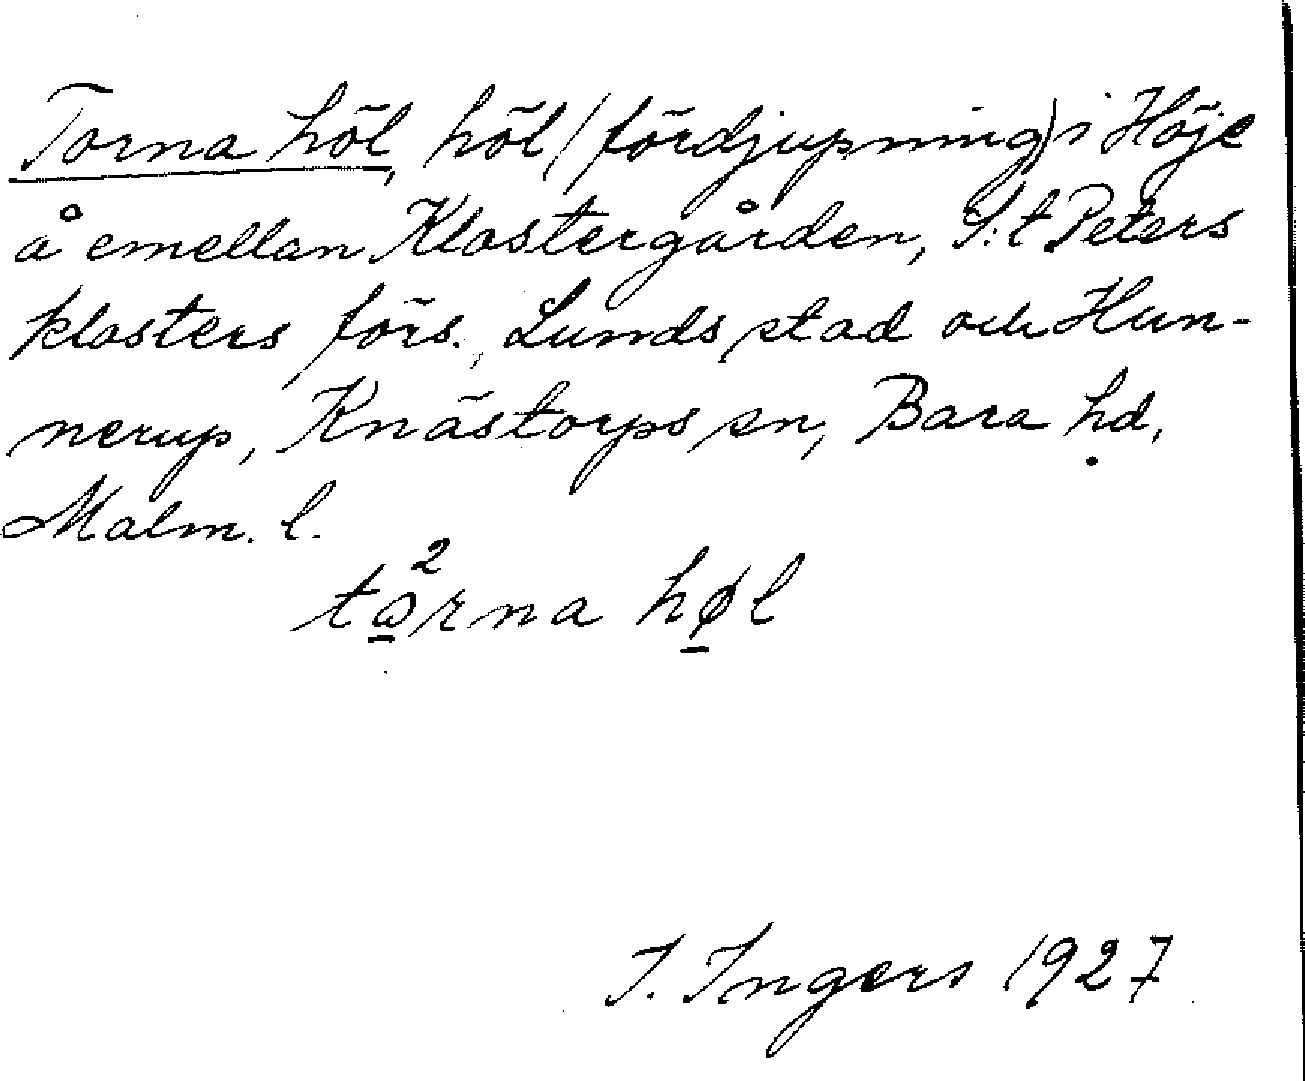 Torna höl, höl (fördjupning) i Höje
å emellan Klostergården, S:t Peters
klosters förs., Lunds stad och Hun-
nerup, Knästorps sn, Bara hd,
Malm. l.
tω̱²rna hø̱l
I. Ingers 1927